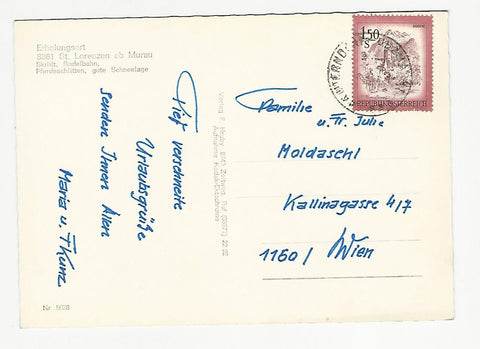 Erholungsort
8861 St. Lorenzen ob Murau
Skilift, Rodelbahn,
Pferdeschlitten, gute Schneelage
Tief verschneite
Urlaubsgrüße
senden Ihnen Allen
Maria u. F Kunz
Nr. 5628
Verlag F. Hruby, 8740 Zeltweg, Ruf (03577) 22 92
Aufnahme Kodak-Ektachrome
1.50
REPUBLIK ÖSTERREICH
Familie
u. Fr. Julie
Moldaschl
Kallinagasse 4/7
1160 / Wien